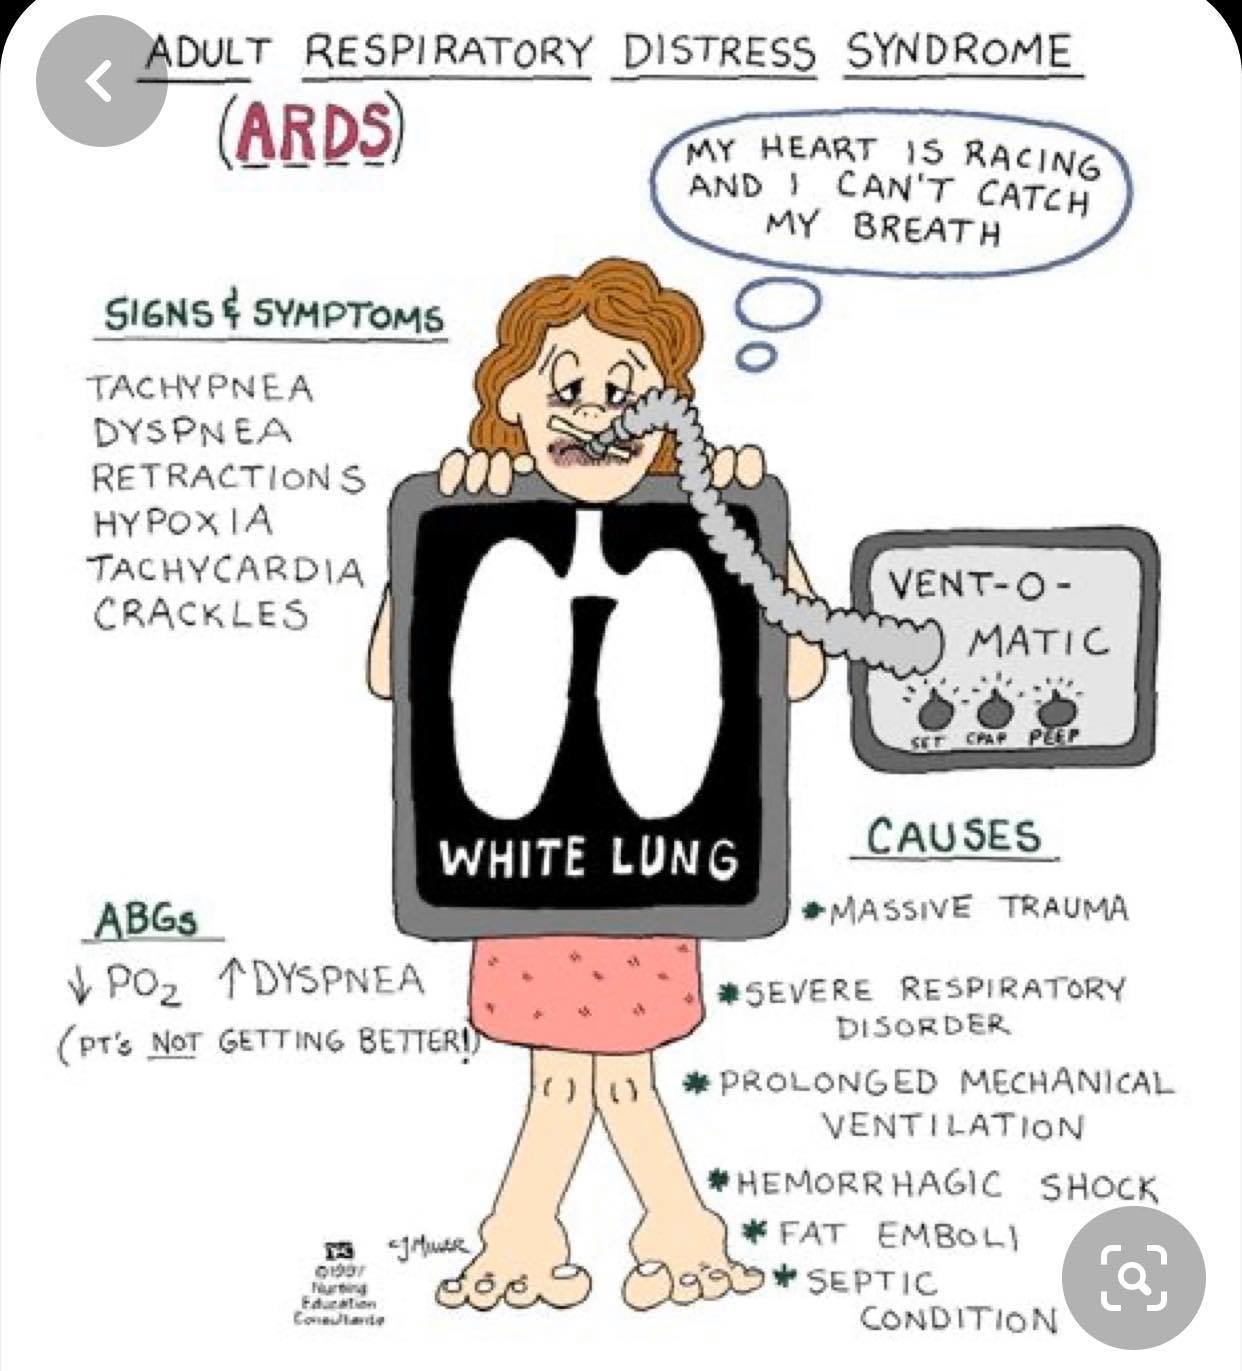 ADULT RESPIRATORY DISTRESS SYNDROME
(ARDS)
MY HEART IS RACING
AND I CAN'T CATCH
MY BREATH
SIGNS & SYMPTOMS
TACHYPNEA
DYSPNEA
RETRACTIONS
HYPOXIA
TACHYCARDIA
CRACKLES
VENT-O-
MATIC
SET CPAP PEEP
WHITE LUNG
ABGs
↓ PO₂ ↑ DYSPNEA
(PT's NOT GETTING BETTER!)
CAUSES
*MASSIVE TRAUMA
*SEVERE RESPIRATORY
DISORDER
*PROLONGED MECHANICAL
VENTILATION
*HEMORRHAGIC SHOCK
*FAT EMBOLI
*SEPTIC
CONDITION
CJMiller
©1997
Nursing
Education
Consultants